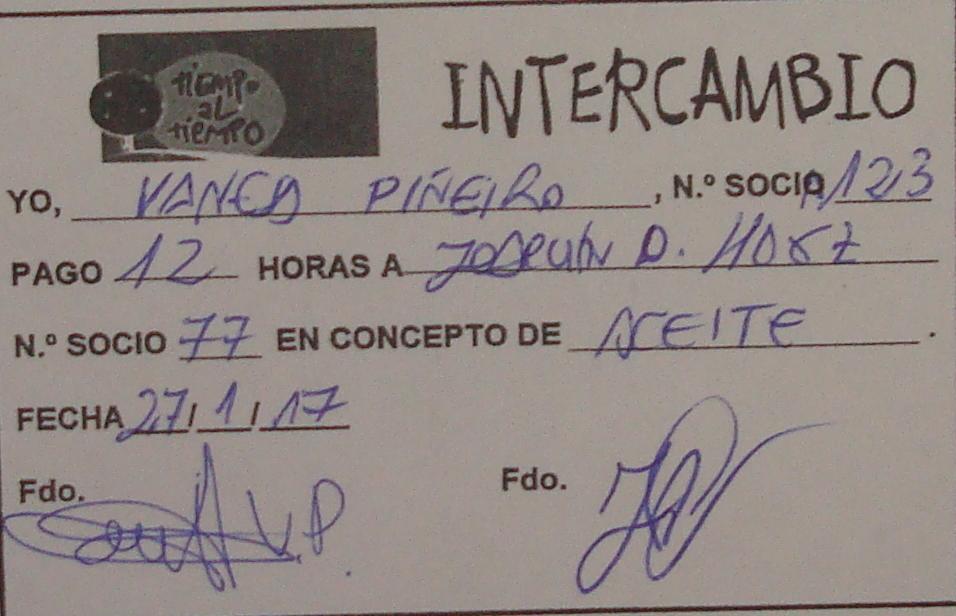 tiEMPO
aL
tiEMPO
INTERCAMBIO
YO, VANESA PIÑEIRO, N.º SOCIA 123
PAGO 12 HORAS A JOAQUIN D.
N.º SOCIO 77 EN CONCEPTO DE ACEITE.
FECHA 27/1/17
Fdo. V.P. Fdo.